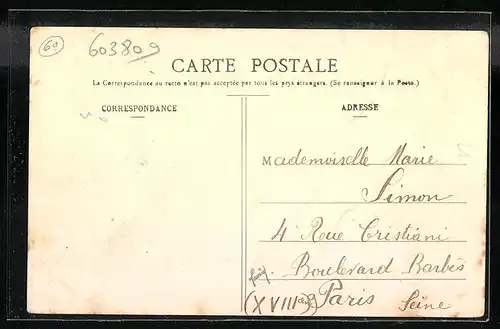 60
603809
CARTE POSTALE
La Correspondance au recto n'est pas acceptée par tous les pays étrangers. (Se renseigner à la Poste.)
CORRESPONDANCE
ADRESSE
Mademoiselle Marie
Simon
4 Rue Cristiani
Boulevard Barbès
Paris Seine
(XVIII